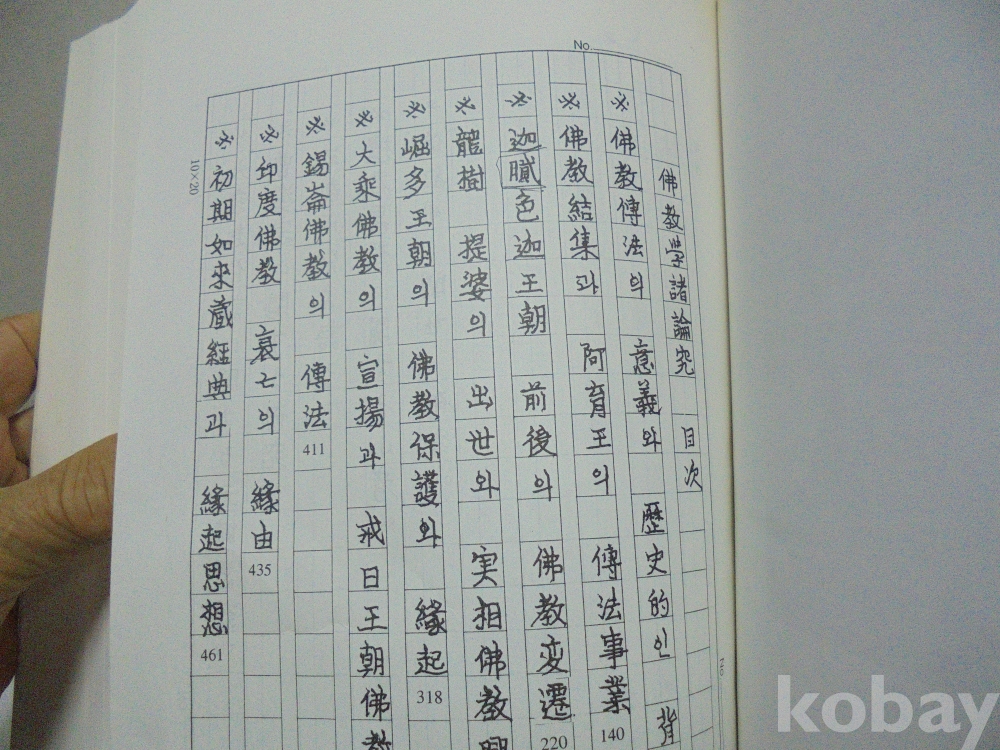 No.
佛教学諸論究 目次
※ 佛教傳法의 意義와 歷史的인 背
※ 佛教結集과 阿育王의 傳法事業 140
※ 迦膩色迦王朝 前後의 佛教変遷 220
※ 龍樹 提婆의 出世와 実相佛教
※ 崛多王朝의 佛教保護와 緣起 318
※ 大乘佛教의 宣揚과 戒日王朝佛教
※ 錫崙佛教의 傳法 411
※ 印度佛教 衰亡의 緣由 435
※ 初期如来蔵経典과 緣起思想 461
10×20
kobay